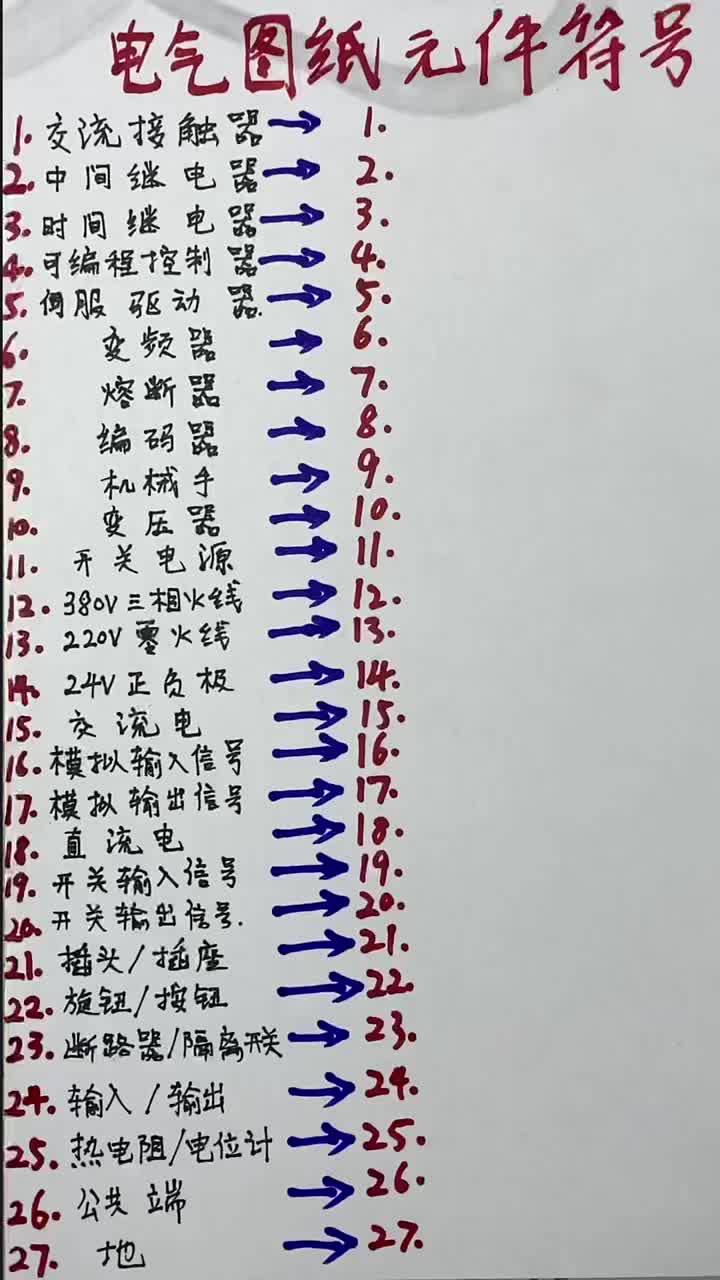 电气图纸元件符号
1. 交流接触器 → 1.
2. 中间继电器 → 2.
3. 时间继电器 → 3.
4. 可编程控制器 → 4.
5. 伺服驱动器. → 5.
6. 变频器 → 6.
7. 熔断器 → 7.
8. 编码器 → 8.
9. 机械手 → 9.
10. 变压器 → 10.
11. 开关电源 → 11.
12. 380V三相火线 → 12.
13. 220V零火线 → 13.
14. 24V正负极 → 14.
15. 交流电 → 15.
16. 模拟输入信号 → 16.
17. 模拟输出信号 → 17.
18. 直流电 → 18.
19. 开关输入信号 → 19.
20. 开关输出信号. → 20.
21. 插头/插座 → 21.
22. 旋钮/按钮 → 22.
23. 断路器/隔离开关 → 23.
24. 输入/输出 → 24.
25. 热电阻/电位计 → 25.
26. 公共端 → 26.
27. 地 → 27.